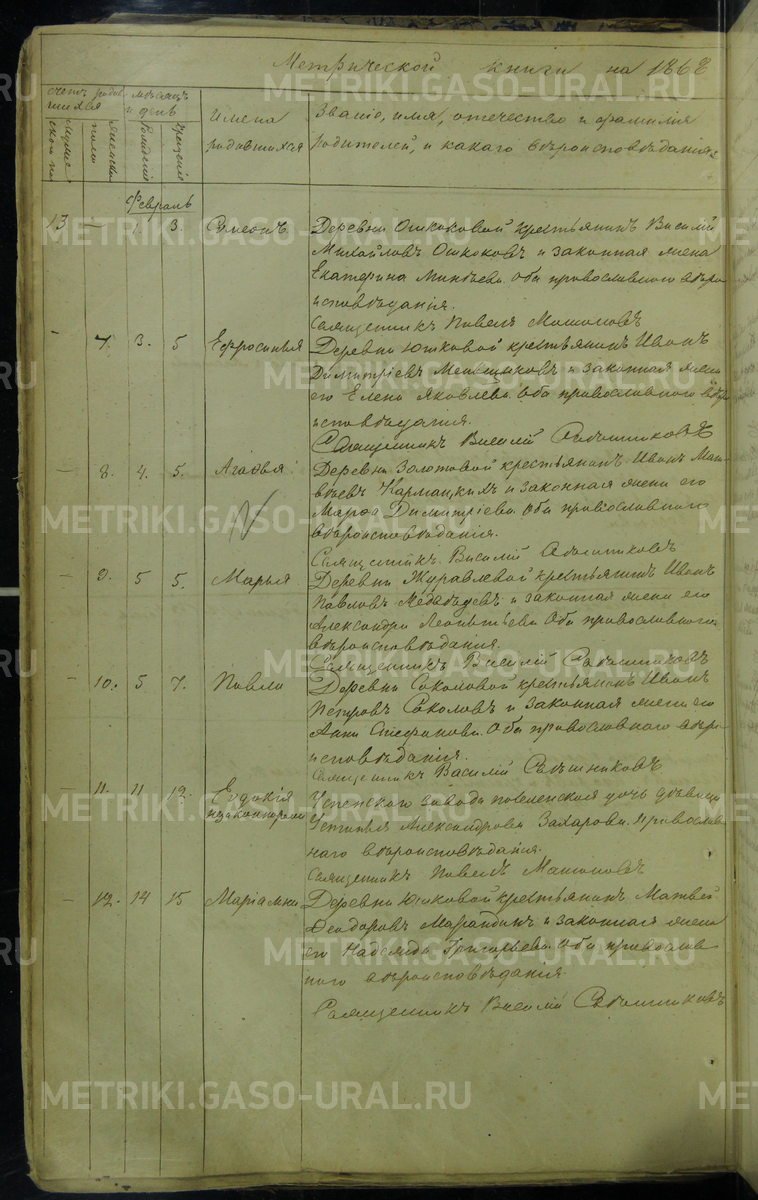 Метрической книги на 1868
счетъ родив шихся
мужескои по
женска
месяцъ и день
рожденія
крещенія
Имена родившихся
Званіе, имя, отечество и фамилія
родителей, и какаго вѣроисповѣданія.
Февраль
13 — 1. 3. Симеонъ Деревни Ошкоковой крестьянинъ Василій
Михайловъ Ошкоковъ и законная жена
Екатерина Минѣева. Оба православнаго вѣро
исповѣданія.
Священникъ Павелъ
— 7. 3. 5 Ефросинья Деревни Юшковой крестьянинъ Иванъ
Димитріевъ Меньщиковъ и законная жена
его Елена Яковлева. Оба православнаго вѣро
исповѣданія.
Священникъ Василій
— 8. 4. 5. Агафья Деревни Золотовой крестьянинъ Иванъ Мат-
вѣевъ Карманскихъ и законная жена его
Марфа Димитріева. Оба православнаго
вѣроисповѣданія.
Священникъ Василій
— 9. 5 5. Марья Деревни Журавлевой крестьянинъ Иванъ
Павловъ Медвѣдевъ и законная жена его
Александра Леонтьева. Оба православнаго
вѣроисповѣданія.
Священникъ Василій
— 10. 5 7. Павла Деревни Соколовой крестьянинъ Иванъ
Петровъ Соколовъ и законная жена его
Анна Стефанова. Оба православнаго вѣро
исповѣданія.
Священникъ Василій
— 11. 11 12. Евдокія незаконнорож Успенскаго завода дочь дѣвица
Устинья Александрова Захарова. Православ
наго вѣроисповѣданія.
Священникъ Павелъ
— 12. 14 15 Маріамна Деревни Юшковой крестьянинъ Матвей
Феодоровъ Марандинъ и законная жена
его Надежда Григорьева. Оба православ
наго вѣроисповѣданія.
Священникъ Василій
METRIKI.GASO-URAL.RU